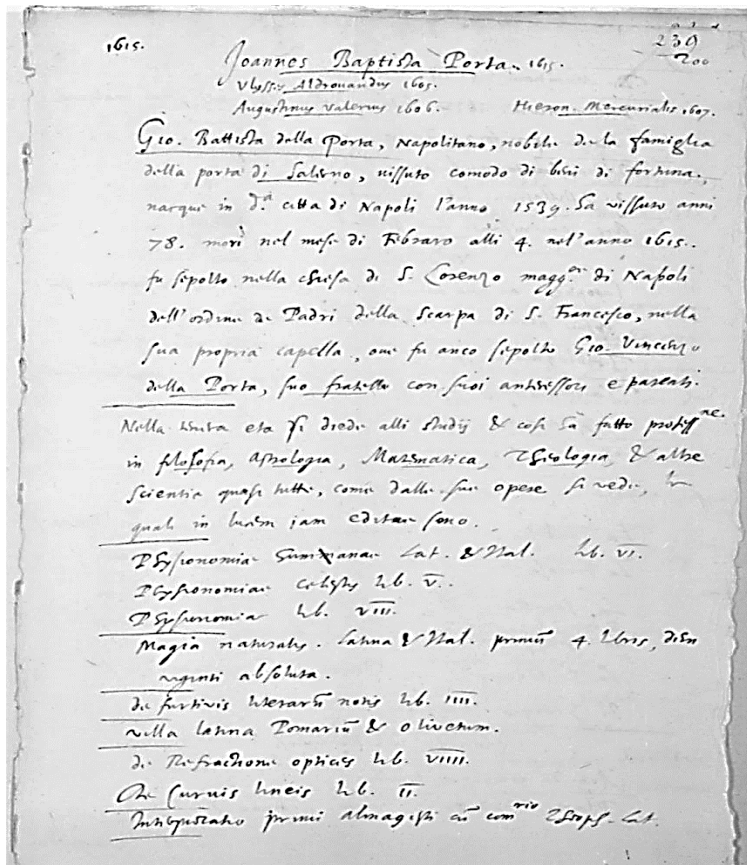 1615.
239
200
Joannes Baptista Porta. 1615.
Ulysses Aldrouandus 1605.
Augustinus Valerius 1606. Hieron. Mercurialis 1607.
Gio. Battista della Porta, Napolitano, nobile de la famiglia
della porta di Salerno, uissuto comodo di beni di fortuna.,
nacque in d.ª citta di Napoli l'anno 1539. ha uissuto anni
78. morì nel mese di Febraro alli 4. nel'anno 1615..
fu sepolto nella chiesa di S. Lorenzo magg.re di Napoli
dell'ordine de Padri della Scarpa di S. Francesco, nella
sua propria capella, oue fu anco sepolto Gio. Vincenzo
della Porta, suo fratello con suoi antecessori e parenti.
Nella tenera eta si diede alli studij & cosi hà fatto profess.ne
in filosofia, Astrologia, Matematica, Theologia, & altre
scientie quasi tutte, come dalle sue opere si vede, le
quali in lucem jam editae sono.
Physionomiae humanae Lat. & Ital. lib. VI.
Physionomiae celestis lib. V..
Physionomia lib. VIII.
Magia naturalis. Latina & Ital. primū 4. libris, dein
uiginti absoluta.
de furtiuis literarū notis lib. IIII.
villa latina Pomariū & oliuetum.
de Refractione optices lib. VIIII.
De Curuis lineis lib. II.
Interpretatio primi almagesti cū com.rio Theops. Lat.